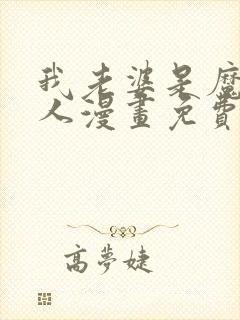 我老婆是魔
人漫畫免費
高夢婕